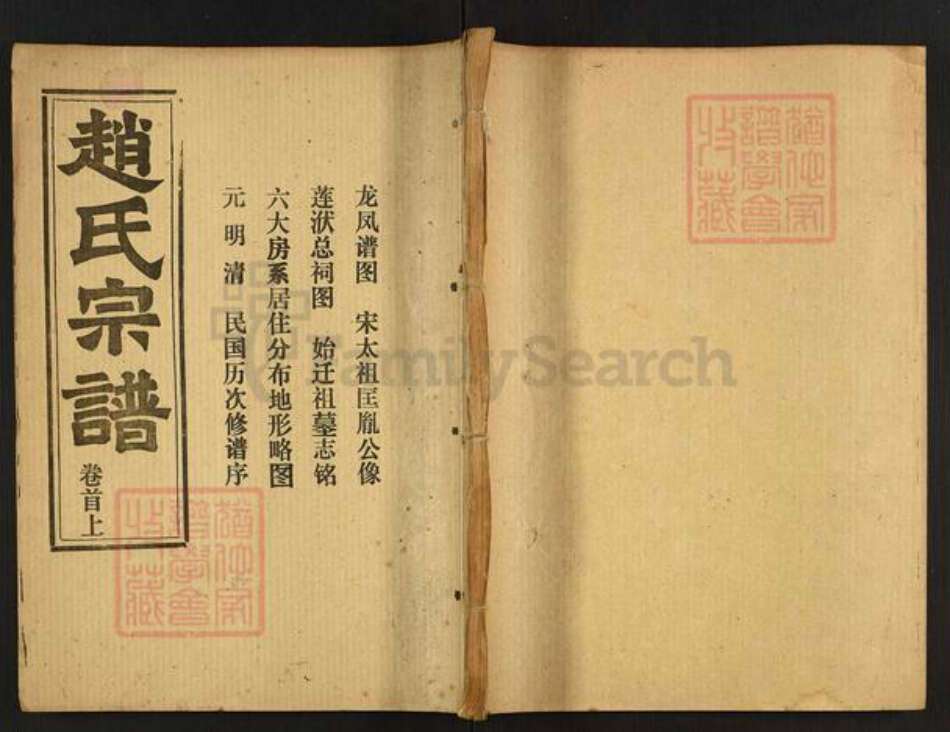 趙氏宗譜
卷首上
龙凤谱图 宋太祖匡胤公像
莲洑总祠图 始迁祖墓志铭
六大房系居住分布地形略图
元明清 民国历次修谱序
FamilySearch